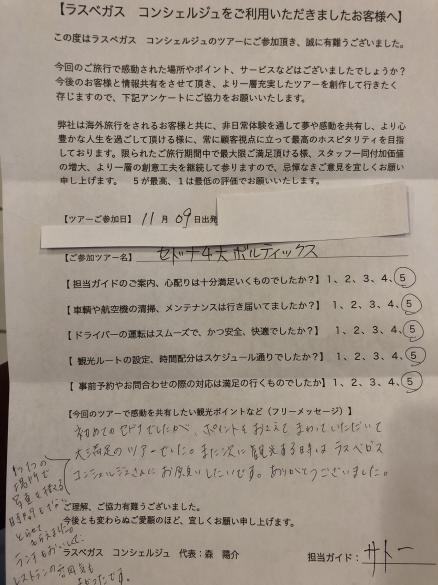 【ラスベガス　コンシェルジュをご利用いただきましたお客様へ】
この度はラスベガス　コンシェルジュのツアーにご参加頂き、誠に有難うございました。
今回のご旅行で感動された場所やポイント、サービスなどはございましたでしょうか？
今後のお客様と情報共有をさせて頂き、より一層充実したツアーを創作して行きたく
存じますので、下記アンケートにご協力をお願いいたします。
弊社は海外旅行をされるお客様と共に、非日常体験を通して夢や感動を共有し、より心
豊かな人生を過ごして頂ける様に、常に顧客視点に立って最高のホスピタリティを目指
しております。限られたご旅行期間中で最大限ご満足頂ける様、スタッフ一同付加価値
の増大、より一層の創意工夫を継続して参りますので、忌憚なきご意見を宜しくお願い
申し上げます。　５が最高、１は最低の評価でお願いいたします。
【ツアーご参加日】 11 月 09 日出発
【ご参加ツアー名】 セドナ4大ボルティックス
【担当ガイドのご案内、心配りは十分満足いくものでしたか？】 1、2、3、4、5
【車輌や航空機の清掃、メンテナンスは行き届いてましたか？】 1、2、3、4、5
【ドライバーの運転はスムーズで、かつ安全、快適でしたか？】 1、2、3、4、5
【 観光ルートの設定、時間配分はスケジュール通りでしたか？】 1、2、3、4、5
【 事前予約やお問合わせの際の対応は満足の行くものでしたか】 1、2、3、4、5
【今回のツアーで感動を共有したい観光ポイントなど（フリーメッセージ）】
初めてのセドナでしたが、ポイントをおさえてまわっていただいて
大満足のツアーでした。また次に観光する時は ラスベガス
コンシェルジュさんに お願いしたいです。ありがとうございました。
1つ1つの
場所で
写真を撮る
時間も
ランチもおいしく
レストランの雰囲気も
よかったです。
ご理解、ご協力有難うございました。
今後とも変わらぬご愛顧のほど、宜しくお願い申し上げます。
ラスベガス　コンシェルジュ　代表：森　陽介
担当ガイド： サトー